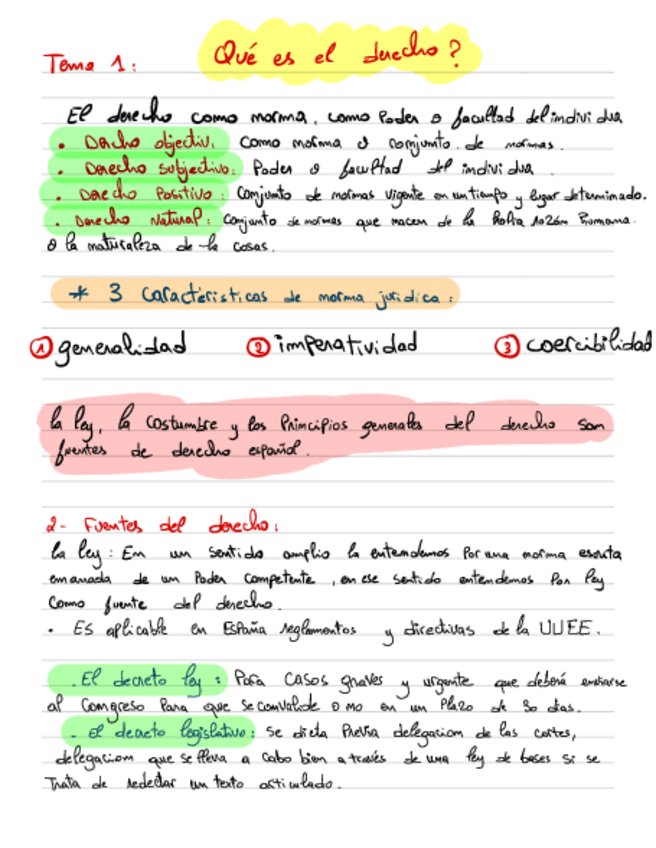 Tema 1:
Qué es el derecho?
El derecho como norma, como Poder o facultad del individuo
• Derecho objectivo: como norma o conjunto de normas.
• Derecho subjectivo: Poder o facultad del individuo
• Derecho Positivo: Conjunto de normas vigente en un tiempo y lugar determinado.
• Derecho Natural: Conjunto de normas que nacen de la Propia razón humana
o la naturaleza de la cosas.
* 3 Características de norma jurídica:
① generalidad ② imperatividad ③ coercibilidad
la ley, la costumbre y los Principios generales del derecho son
fuentes de derecho español.
2- Fuentes del derecho:
la ley: En un sentido amplio la entendemos por una norma escrita
emanada de un Poder competente, en ese sentido entendemos Por ley
como fuente del derecho.
• Es aplicable en España reglamentos y directivas de la UUEE.
. El decreto ley: Para casos graves y urgente que deberá enviarse
al Congreso Para que se convalide o no en un Plazo de 30 días.
. El decreto legislativo: se dicta Previa delegacion de las cortes,
delegacion que se lleva a cabo bien a través de una ley de bases si se
Trata de redactar un texto articulado.